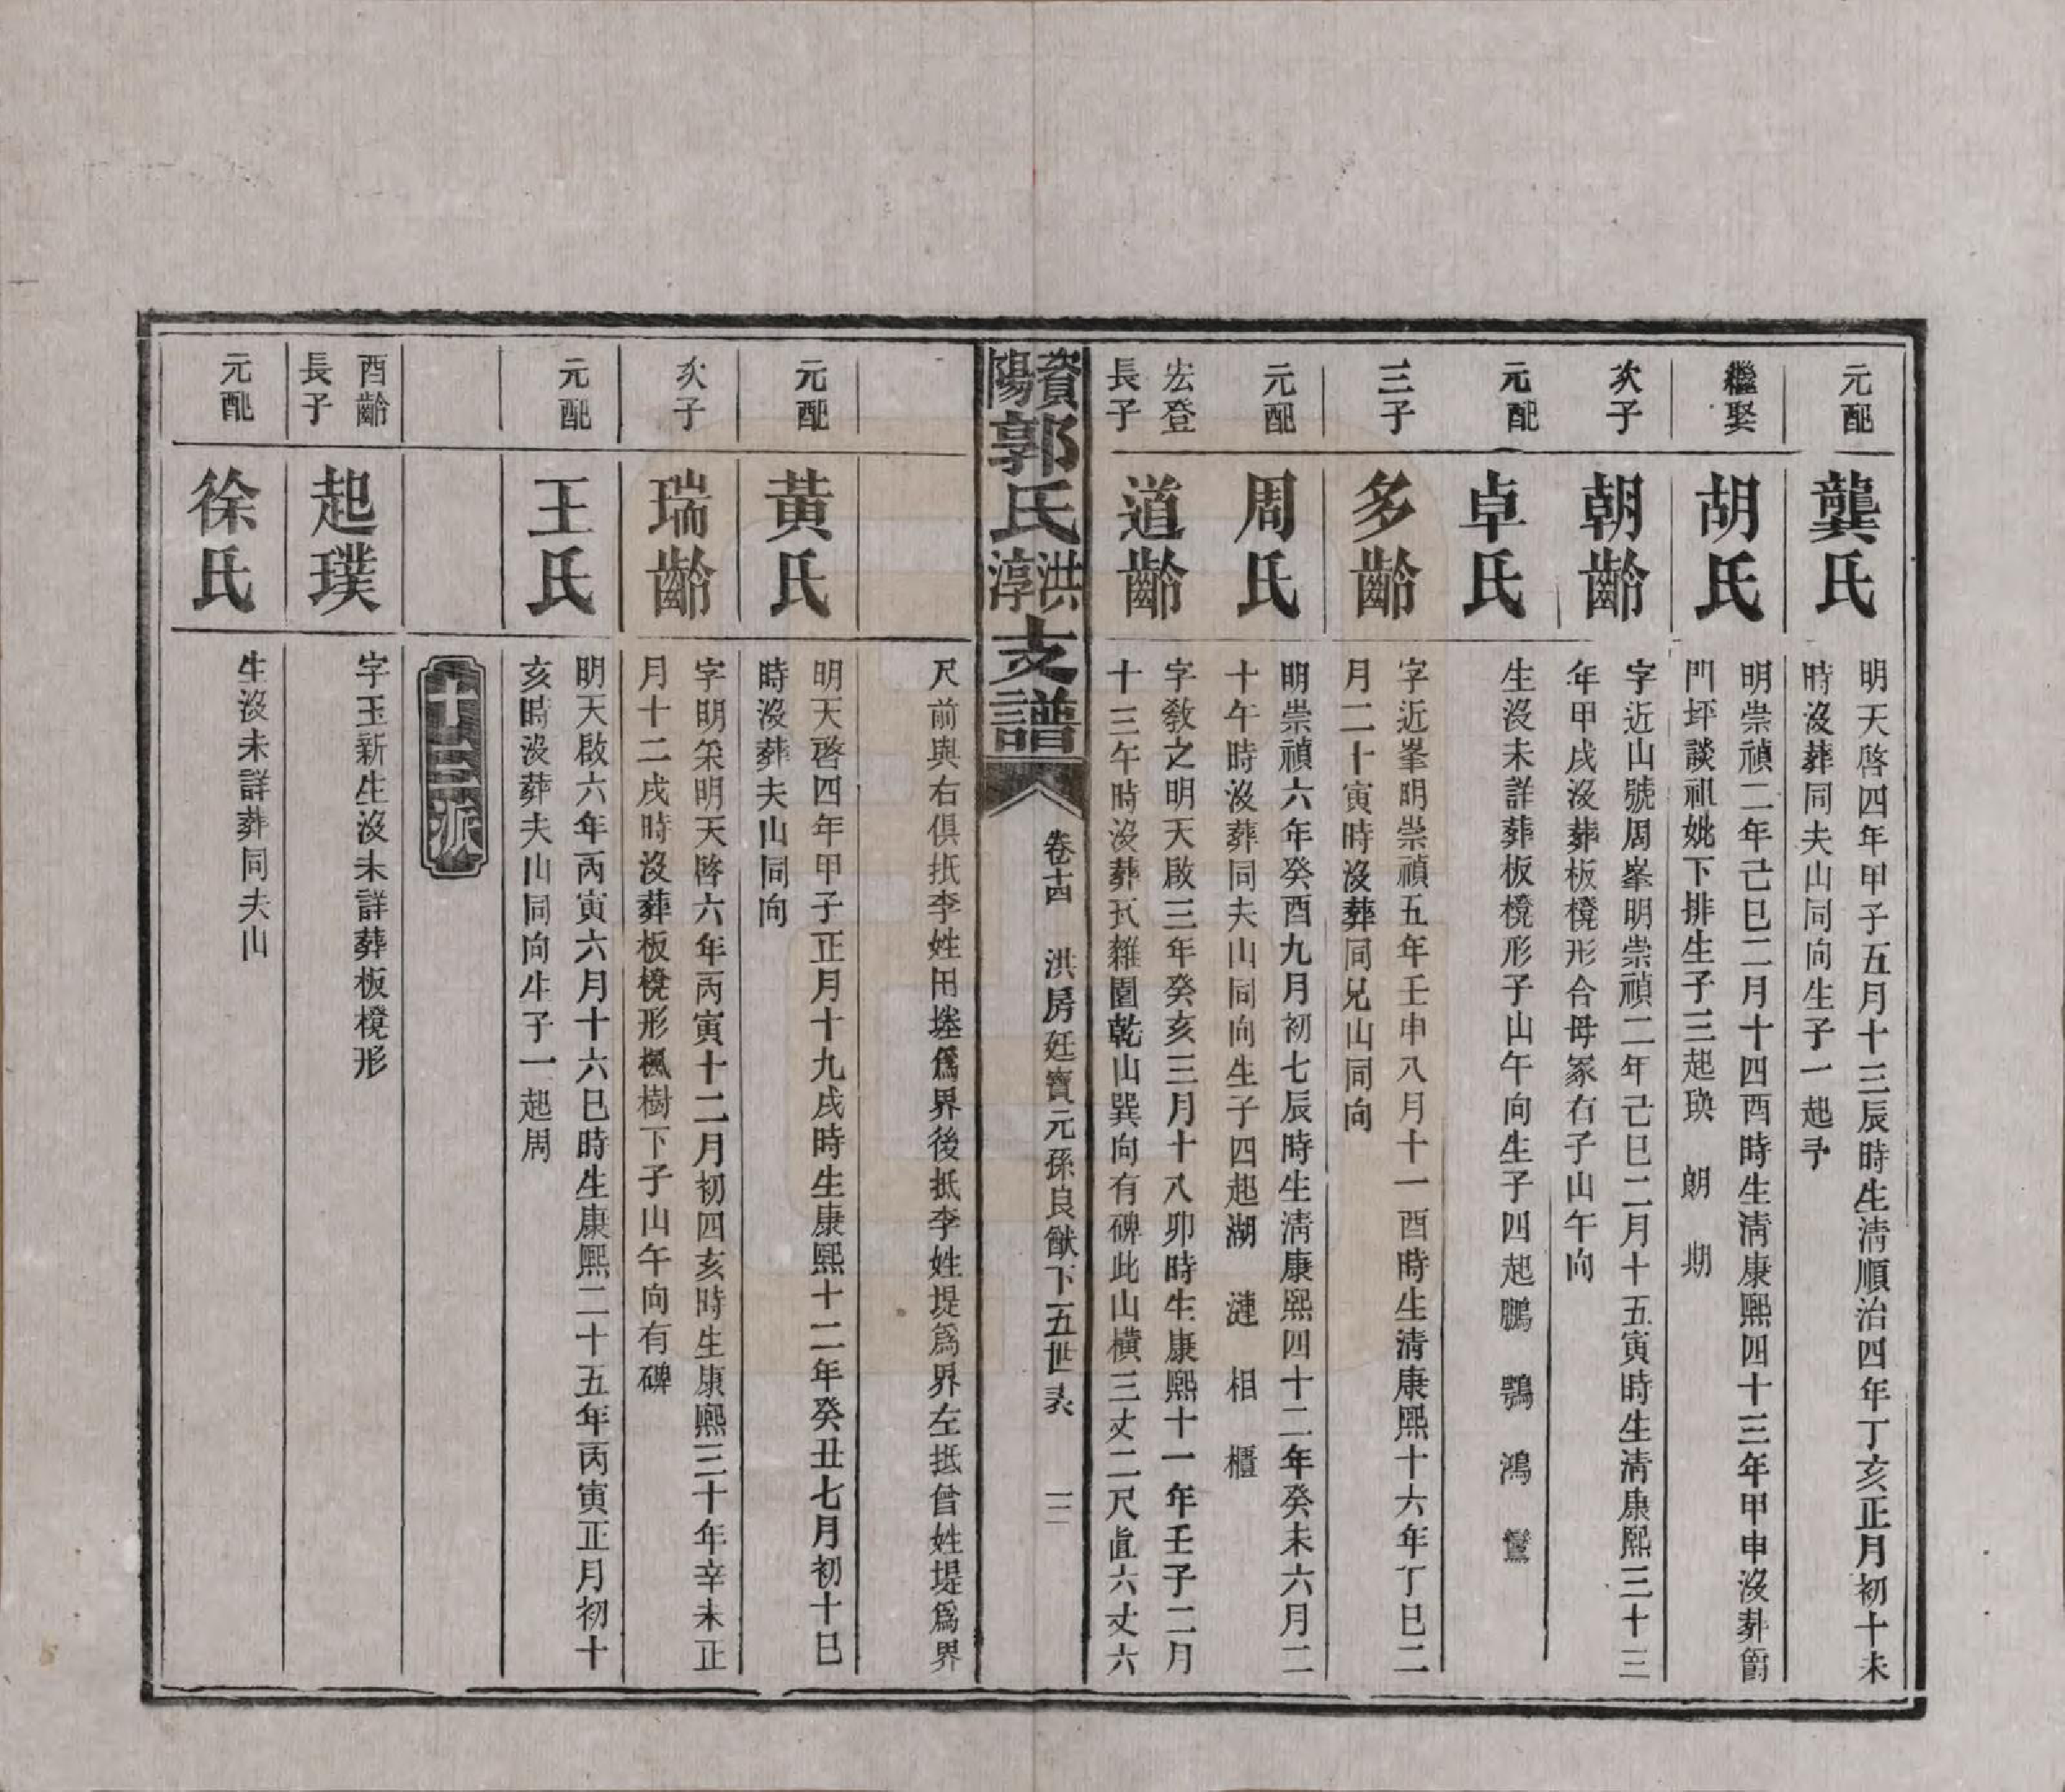 元配
龔氏
明天啓四年甲子五月十三辰時生淸順治四年丁亥正月初十未
時沒葬同夫山同向生子一起予
繼娶
胡氏
明崇禎二年己巳二月十四酉時生淸康熙四十三年甲申沒葬
門坪談祖妣下排生子三起瑛 朗 期
次子
朝齡
字近山號周峯明崇禎二年己巳二月十五寅時生淸康熙三十三
年甲戌沒葬板櫈形合母冢右子山午向
元配
卓氏
生沒未詳葬板櫈形子山午向生子四起鵬 鶚 鴻 鸞
三子
多齡
字近峯明崇禎五年壬申八月十一酉時生淸康熙十六年丁巳二
月二十寅時沒葬同兄山同向
元配
周氏
明崇禎六年癸酉九月初七辰時生淸康熙四十二年癸未六月二
十午時沒葬同夫山同向生子四起湖 漣 相 櫃
宏登
長子
道齡
字敎之明天啟三年癸亥三月十八卯時生康熙十一年壬子二月
十三午時沒葬瓦雜園乾山巽向有碑此山橫三丈二尺直六丈六
資陽郭氏洪淳支譜
卷十四 洪房廷寶元孫良猷下五世表 二
尺前與右俱抵李姓田塍爲界後抵李姓堤爲界左抵曾姓堤爲界
元配
黃氏
明天啓四年甲子正月十九戌時生康熙十二年癸丑七月初十巳
時沒葬夫山同向
次子
瑞齡
字明采明天啓六年丙寅十二月初四亥時生康熙三十年辛未正
月十二戌時沒葬板櫈形楓樹下子山午向有碑
元配
王氏
明天啟六年丙寅六月十六巳時生康熙二十五年丙寅正月初十
亥時沒葬夫山同向生子一起周
十三派
酉齡
長子
起璞
字玉新生沒未詳葬板櫈形
元配
徐氏
生沒未詳葬同夫山